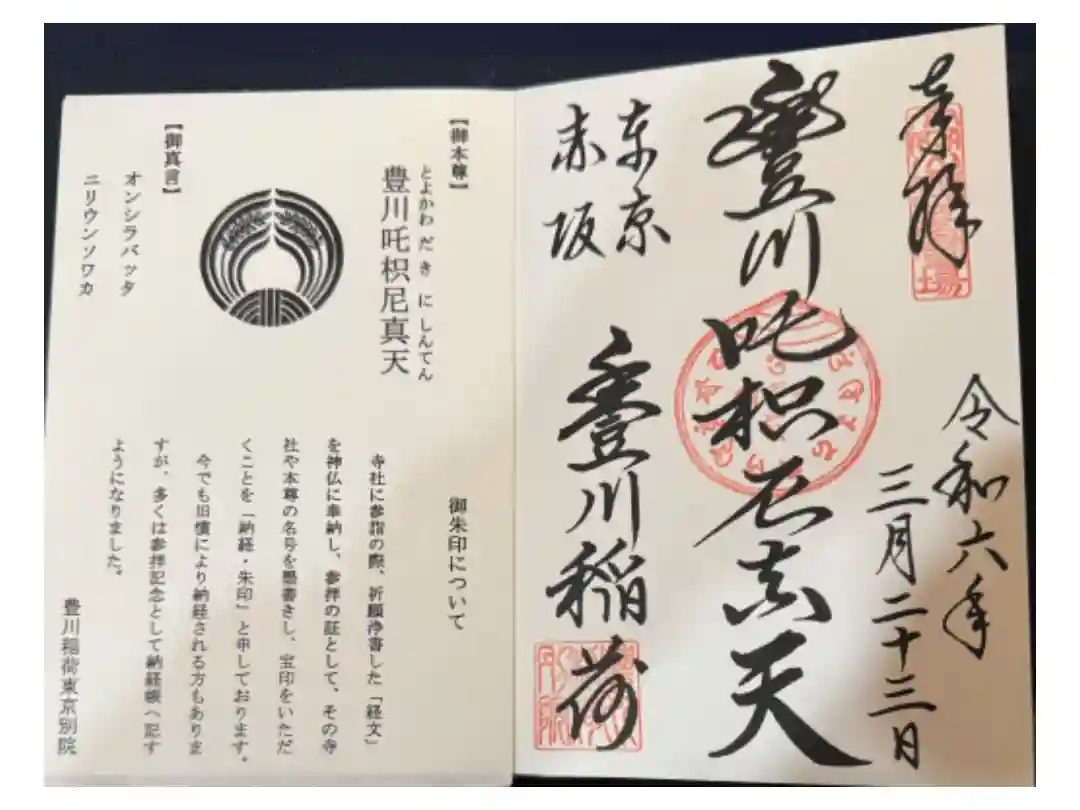 奉拝
令和六年
三月二十三日
豊川吒枳尼真天
東京
赤坂
豊川稲荷
【御本尊】
とよかわ だ き に しんてん
豊川吒枳尼真天
【御真言】
オンシラバッタ
ニリウンソワカ
御朱印について
寺社に参詣の際、祈願浄書した「経文」
を神仏に奉納し、参拝の証として、その寺
社や本尊の名号を墨書きし、宝印をいただ
くことを「納経・朱印」と申しております。
今でも旧慣により納経される方もありま
すが、多くは参拝記念として納経帳へ記す
ようになりました。
豊川稲荷東京別院